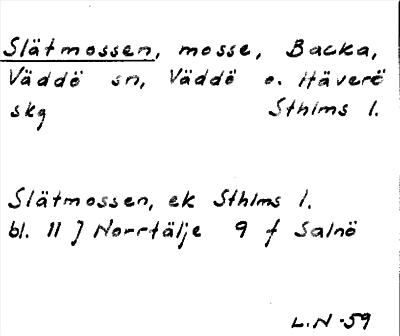 Slätmossen, mosse, Backa,
Väddö sn, Väddö o. Häverö
skg Sthlms l.
Slätmossen, ek Sthlms l.
bl. 11 J Norrtälje 9 f Salnö
L.N -59